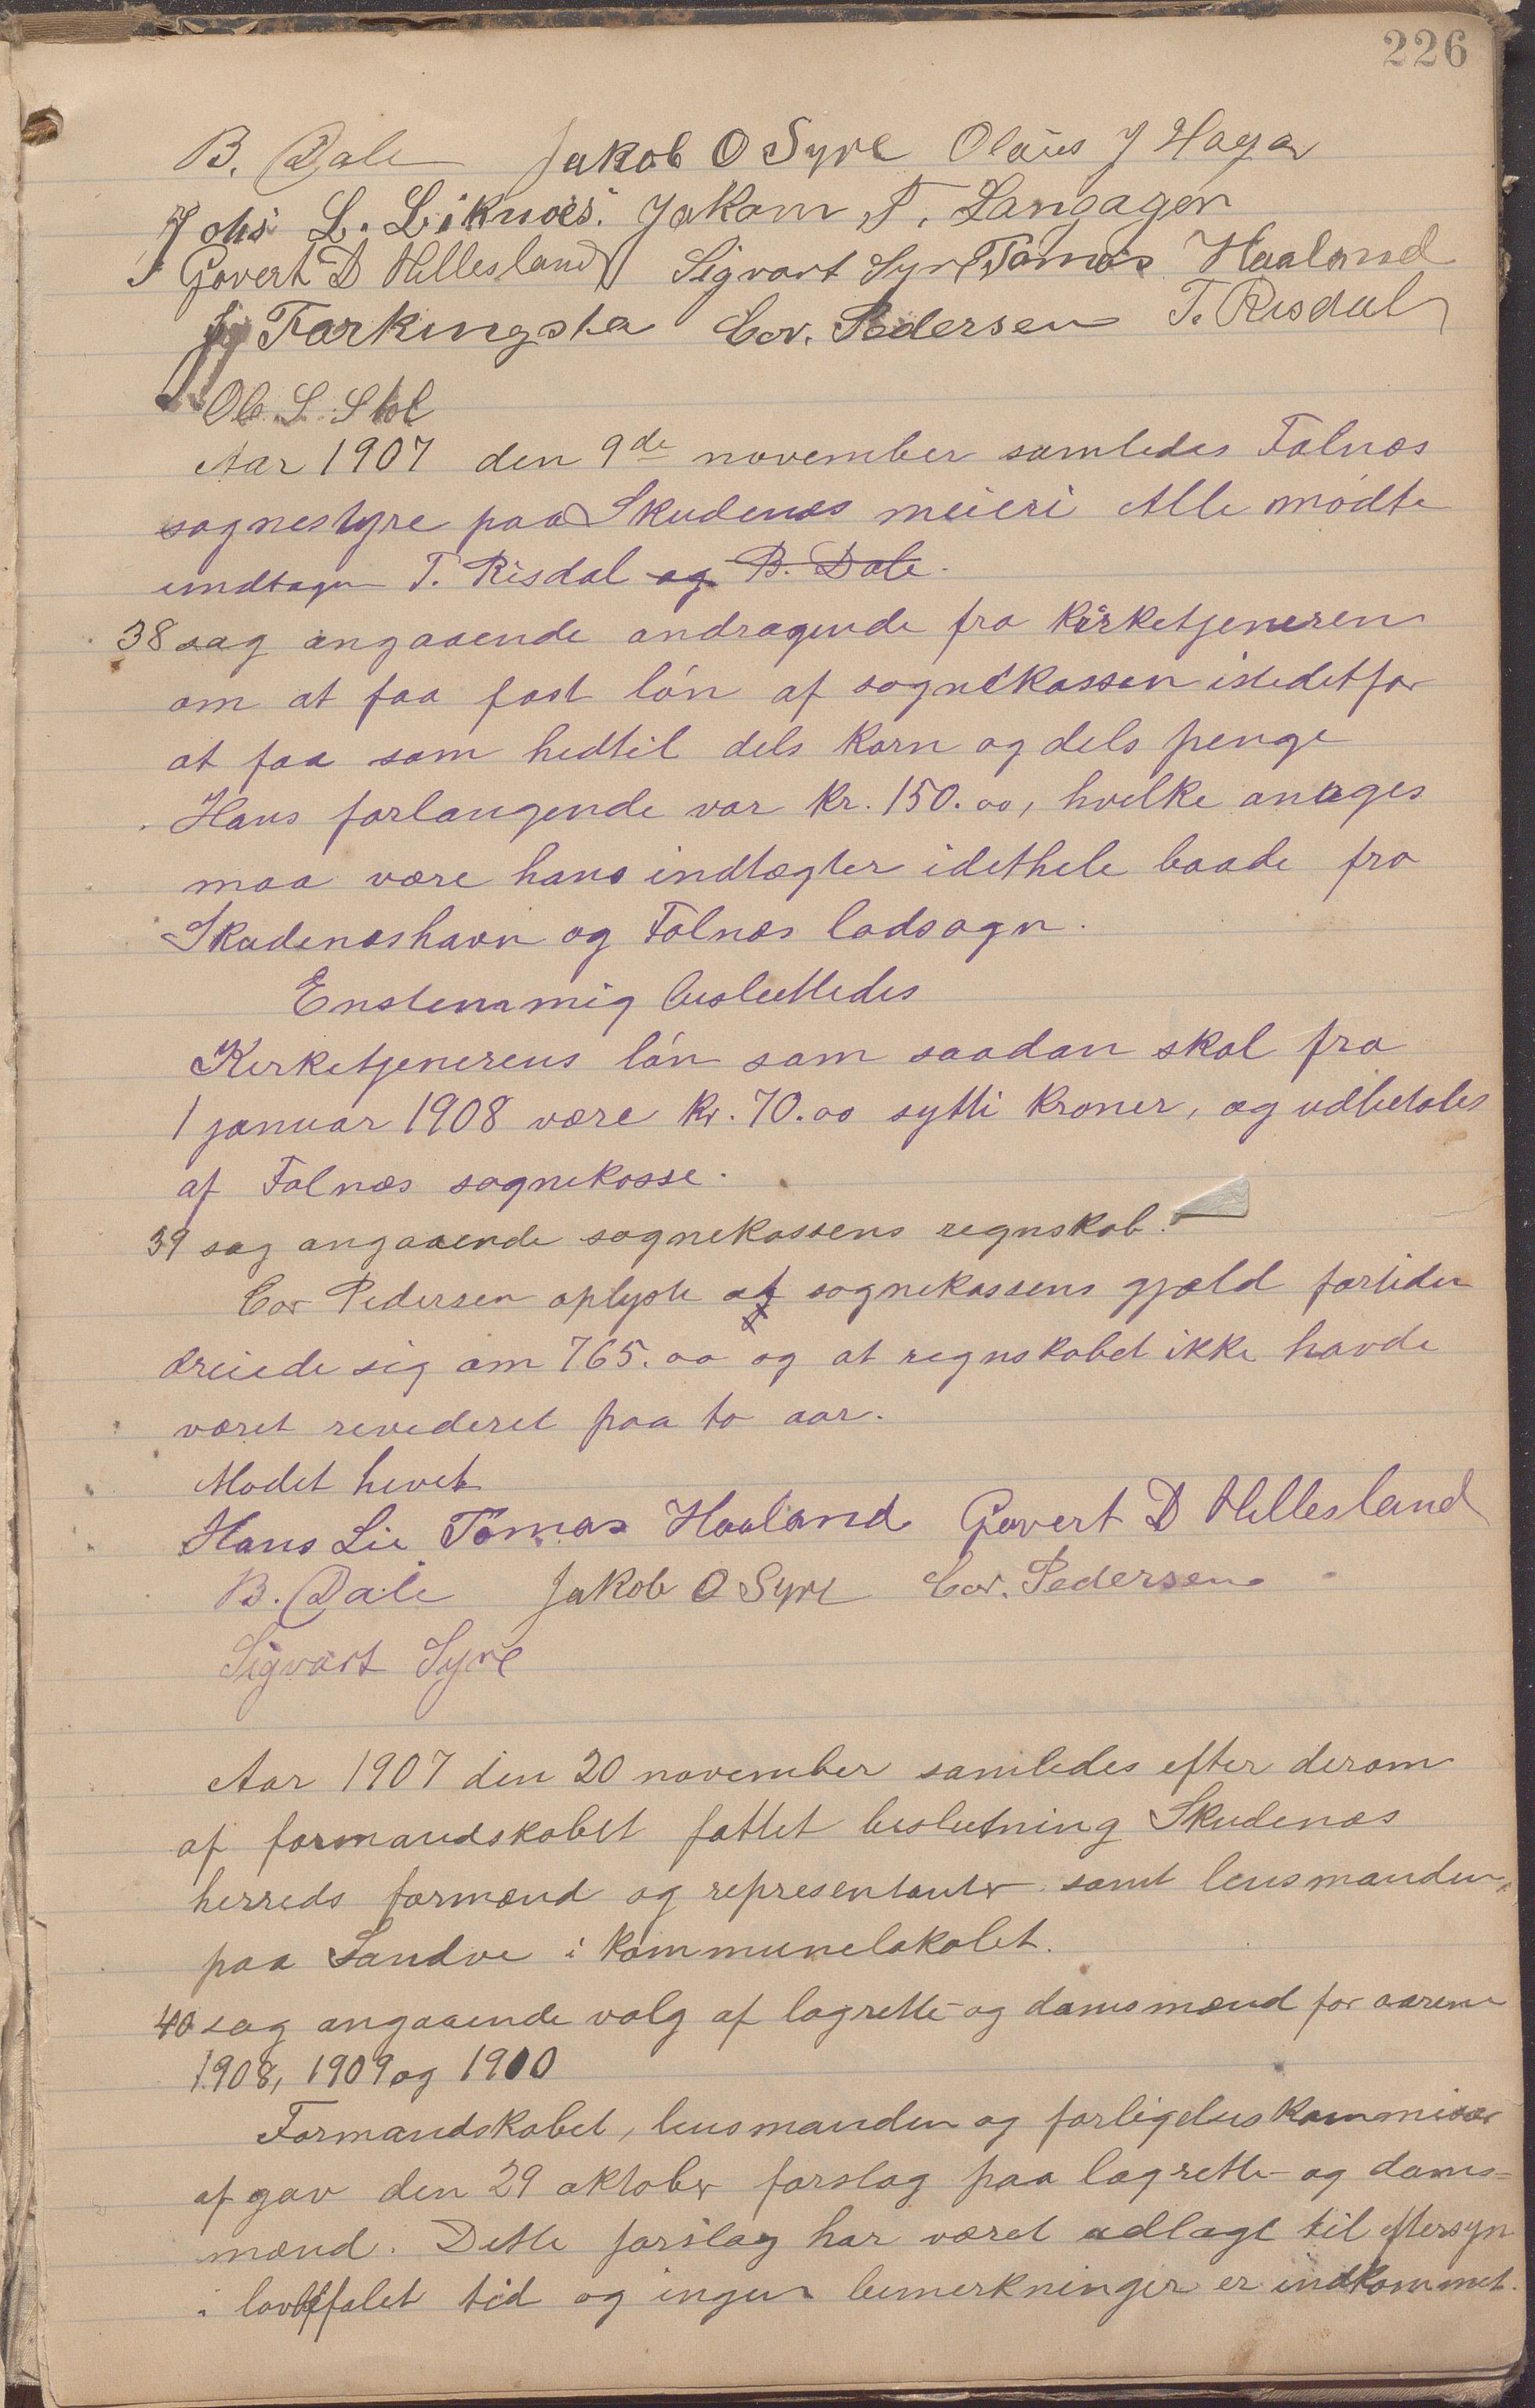 226
B. Dale Jakob O Syre Olaus J Haga
Johs L. Liknes. Jakom T. Langager
Govert D Hillesland Sigvart Syre Tomas Haaland
Farkingsta Cor. Pedersen T. Risdal
Ole S. Stol
Aar 1907 den 9de november samledes Falnæs
sognestyre paa Skudenæs meieri Alle mødte
undtagen T. Risdal og B. Dale.
38 sag angaaende andragende fra Kirketjeneren
om at faa fast løn af sognekassen istedetfor
at faa som hedtil dels korn og dels penge
Hans forlangende var kr. 150.00, hvilke anages
maa være hans indtægter idethele baade fra
Skudeneshavn og Falnæs ladsogn.
Enstemmig besluttedes
Kirketjenerens løn som saadan skal fra
1 januar 1908 være kr. 70.00 sytti kroner, og udbetales
af Falnæs sognekasse.
39 sag angaaende sognekassens regnskab.
Cor Pedersen oplyste at sognekassens gjæld fortiden
dreiede sig om 765.00 og at regnskabet ikke havde
været revideret paa to aar.
Mødet hevet
Hans Lie Tomas Haaland Govert D Hillesland
B. Dale Jakob O Syre Cor. Pedersen
Sigvart Syre
Aar 1907 den 20 november samledes efter derom
af formandskabet fattet beslutning Skudenæs
herreds formænd og representanter samt lensmanden,
paa Sandve i kommunelokalet.
40 sag angaaende valg af lagrette- og domsmænd for aarene
1908, 1909 og 1910
Formandskabet, lensmanden og forligelseskommisær
afgav den 29 oktober forslag paa lagrette- og doms-
mænd. Dette forslag har været udlagt til eftersyn
i lovbefalet tid og ingen bemerkninger er indkommet.